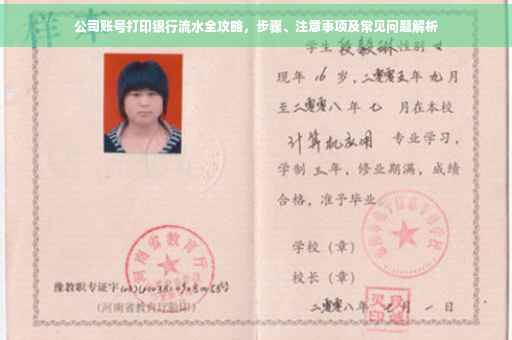 公司账号打印银行流水全攻略，步骤、注意事项及常见问题解析
样本
学生段毅琳性别女
现年16岁，二零零五年九月
至二零零八年七 月在本校
计算机应用 专业学习，
学制三年，修业期满，成绩
合格，准予毕业
学校（章）
校长（章）
二零零八年 月一日
河南省教育厅
豫教职专证字
(河南省教育厅验印)